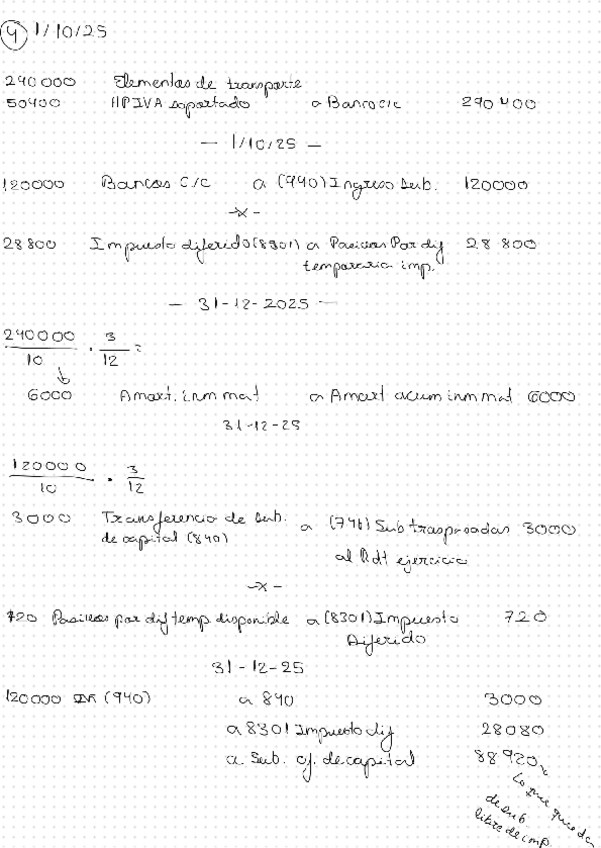 4 1/10/25
240000 Elementos de transporte
50400 HP IVA soportado a Banco c/c 290400
— 1/10/25 —
120000 Bancos C/C a (940) Ingreso Sub. 120000
-x-
28800 Impuesto diferido (8301) a Pasivos Por dif 28 800
temporaria imp.
— 31-12-2025 —
240000/10 · 3/12 =
6000 Amort. inm mat a Amort acum inm mat 6000
31-12-25
120000/10 · 3/12
3000 Transferencia de sub. a (746) Sub traspasadas 3000
de capital (840)
al Rdt ejercicio
-x-
720 Pasivos por dif temp disponible a (8301) Impuesto 720
Diferido
31-12-25
120000 (940) a 840 3000
a 8301 Impuesto dif 28080
a Sub. of. de capital 88920
Lo que queda
de sub
libre de imp.